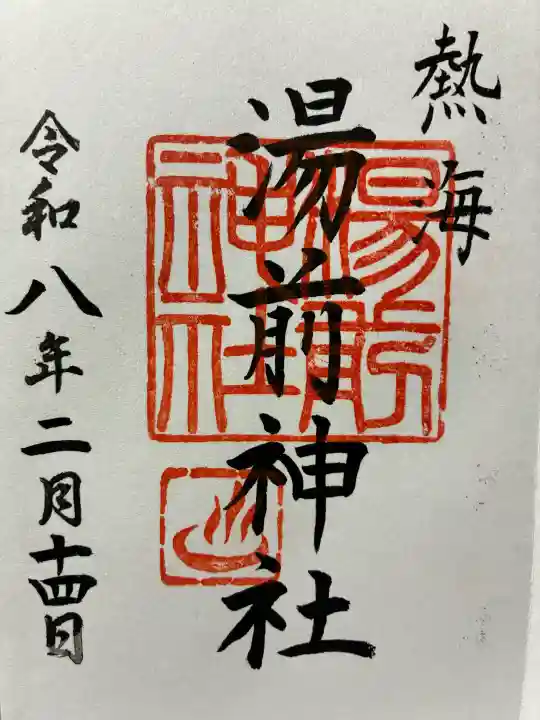 熱海
湯前神社
湯前神社
令和八年二月十四日